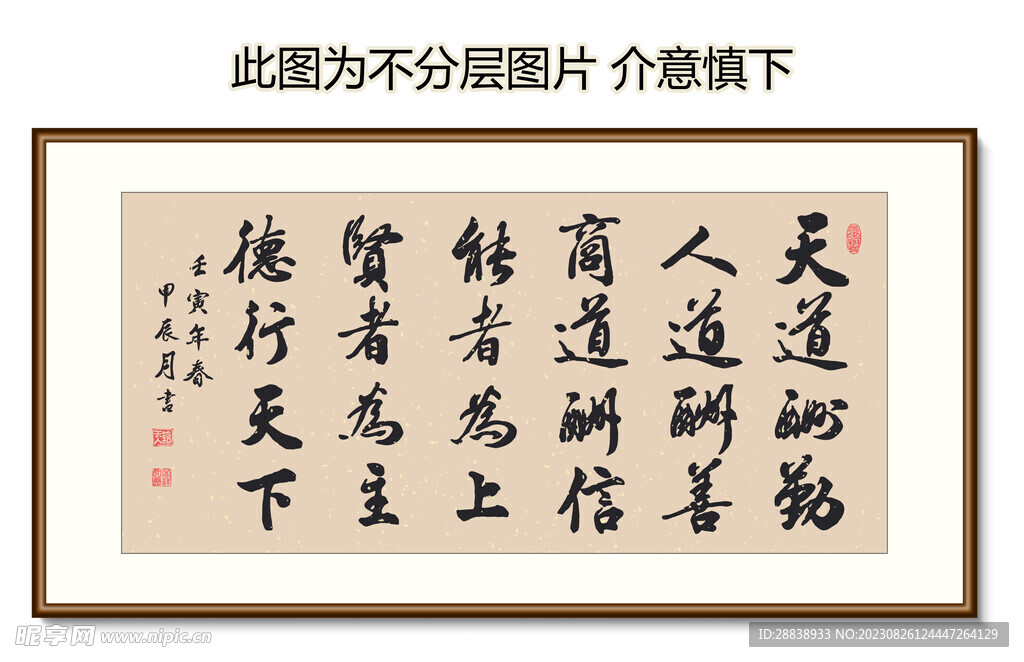 此图为不分层图片 介意慎下
天道酬勤
人道酬善
商道酬信
能者為上
賢者為主
德行天下
壬寅年春
甲辰月书
昵享网 www.nipic.cn
ID:28838933 NO:20230826124447264129